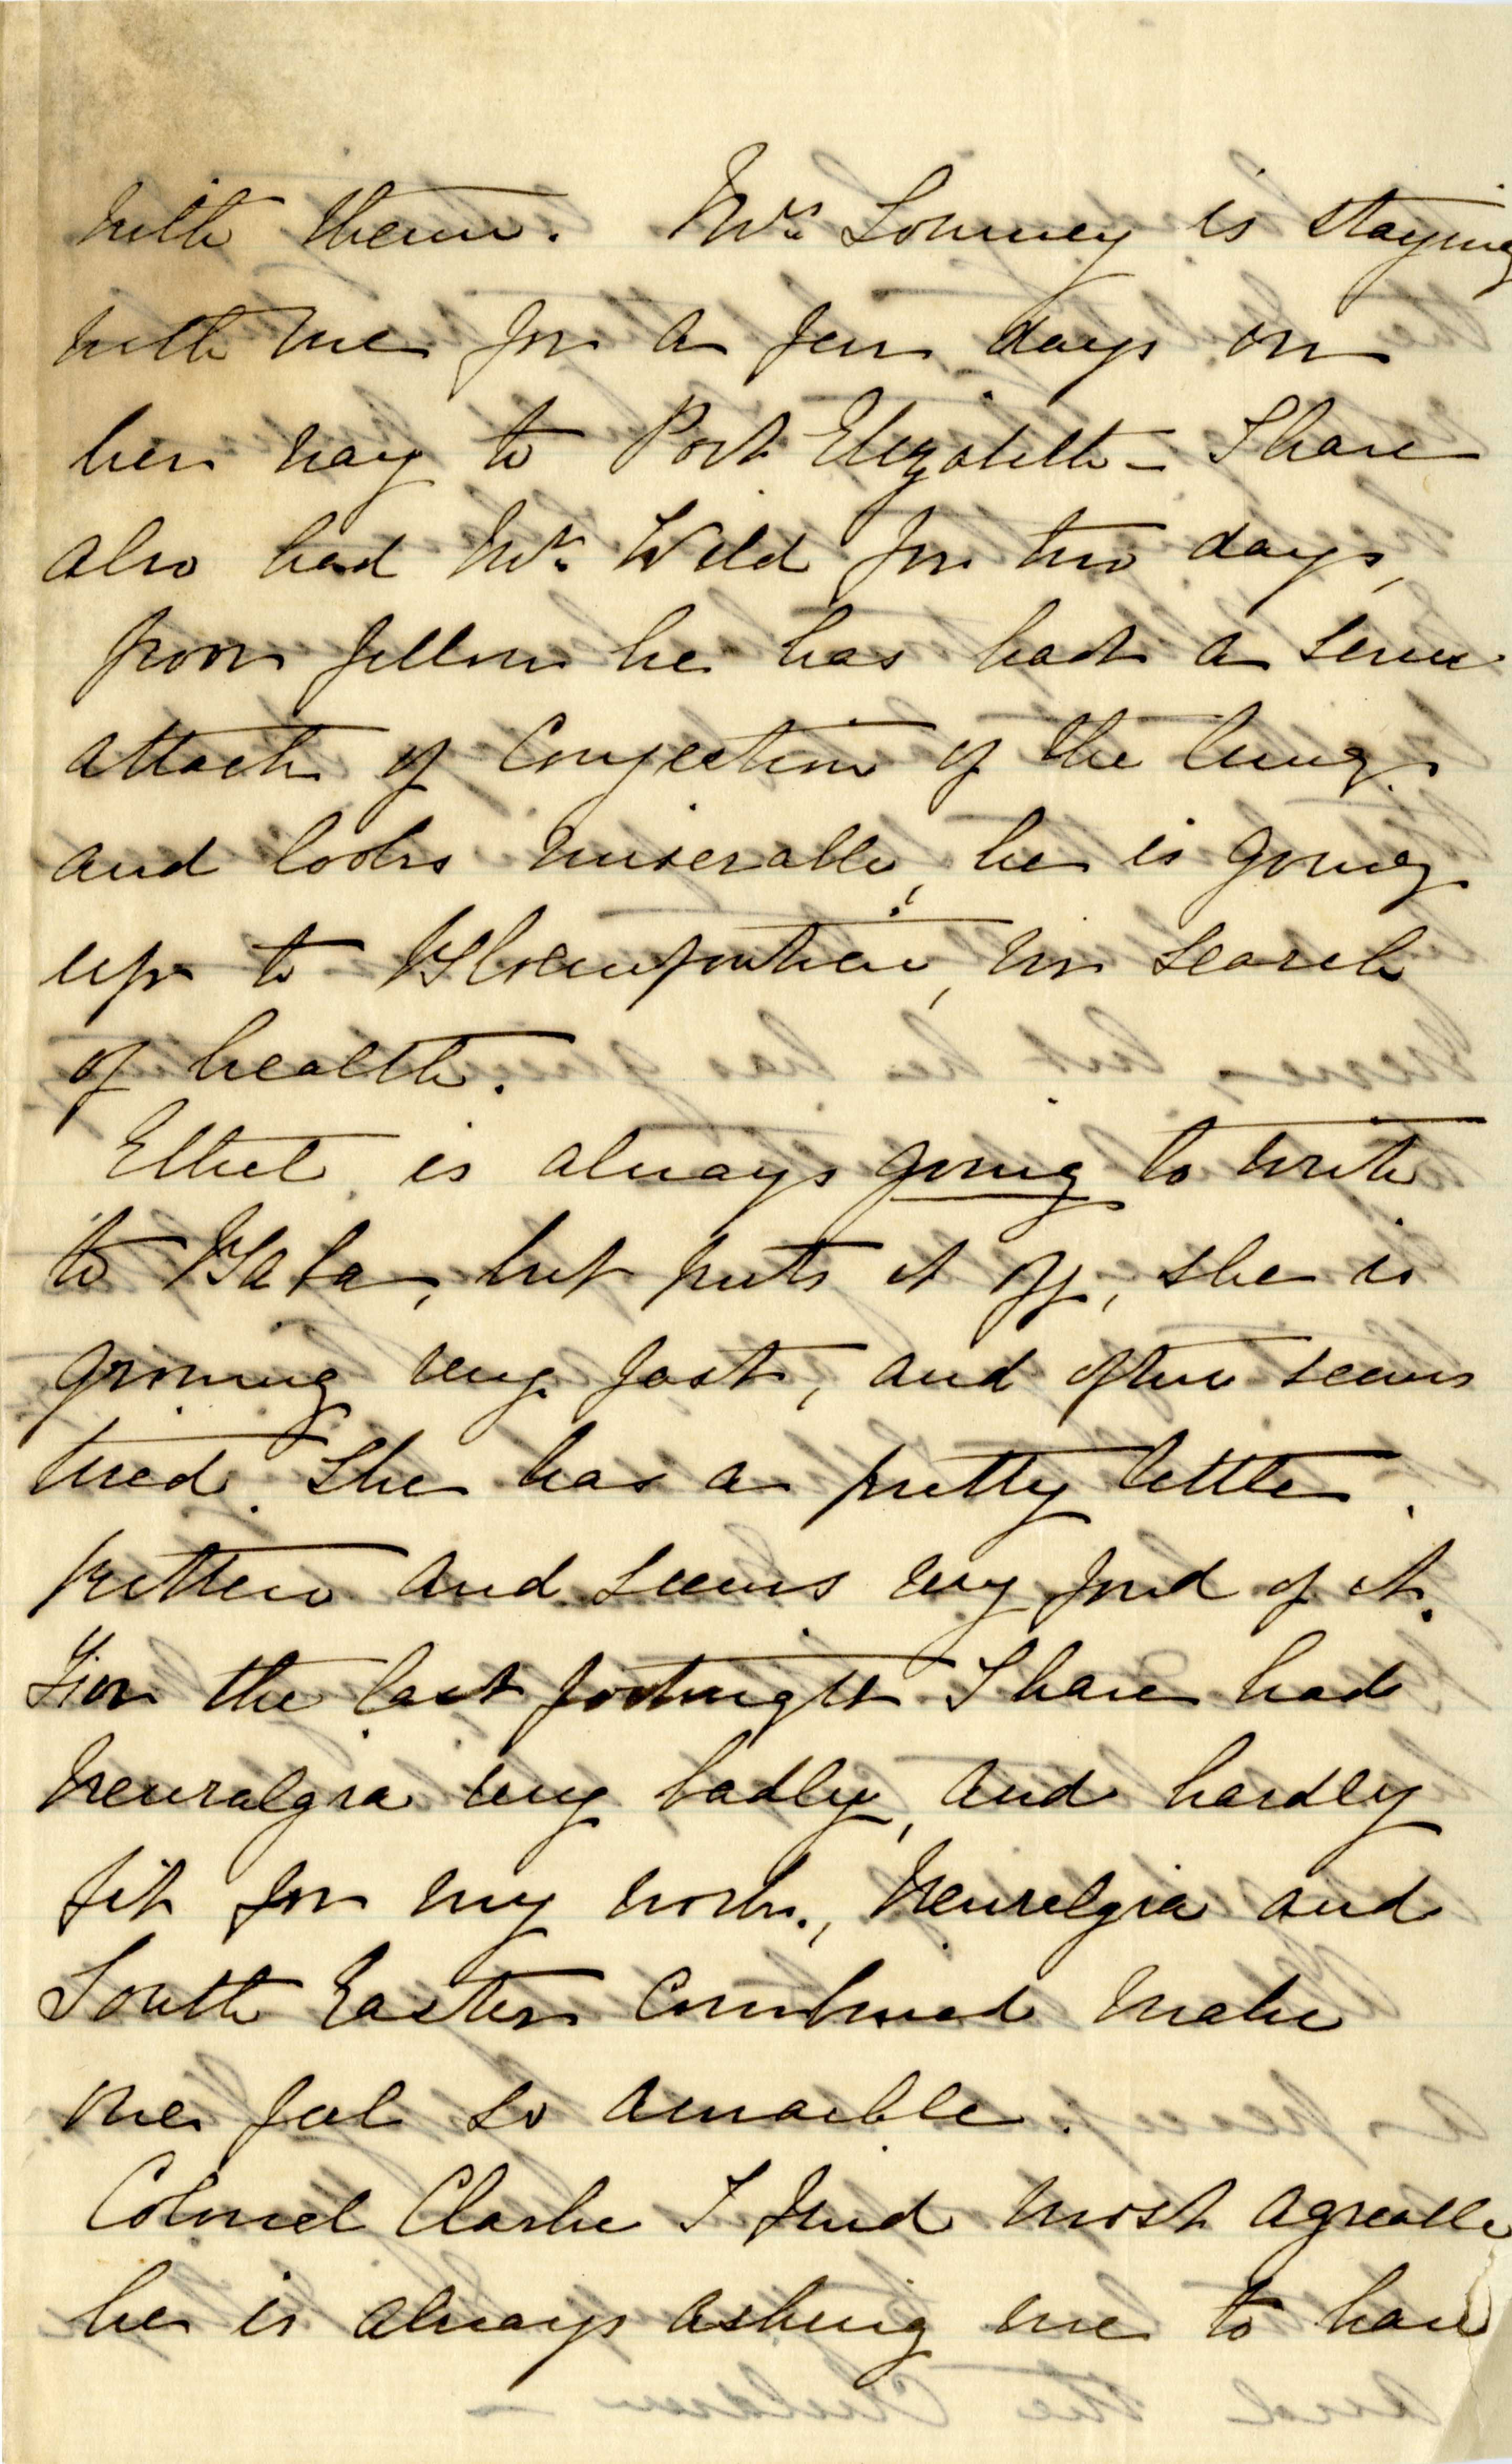 with them. Mrs Loumey is staying
with me for a few days on
her way to Port Elizabeth – I have
also had Mr. Wild for two days,
poor fellow he has had a severe
attack of Congestion of the lungs
and looks miserable, he is going
up to Bloemfontein, in search
of health.
Ethel is always going to write
to Baba, but puts it off, she is
growing very fast, and often seems
tired. She has a pretty little
kitten and seems very fond of it.
For the last fortnight I have had
Neuralgia very badly, and hardly
fit for my work., Neuralgia and
South Easters combined make
me feel so amiable.
Colonel Clarke I find most agreeable
he is always asking me to have